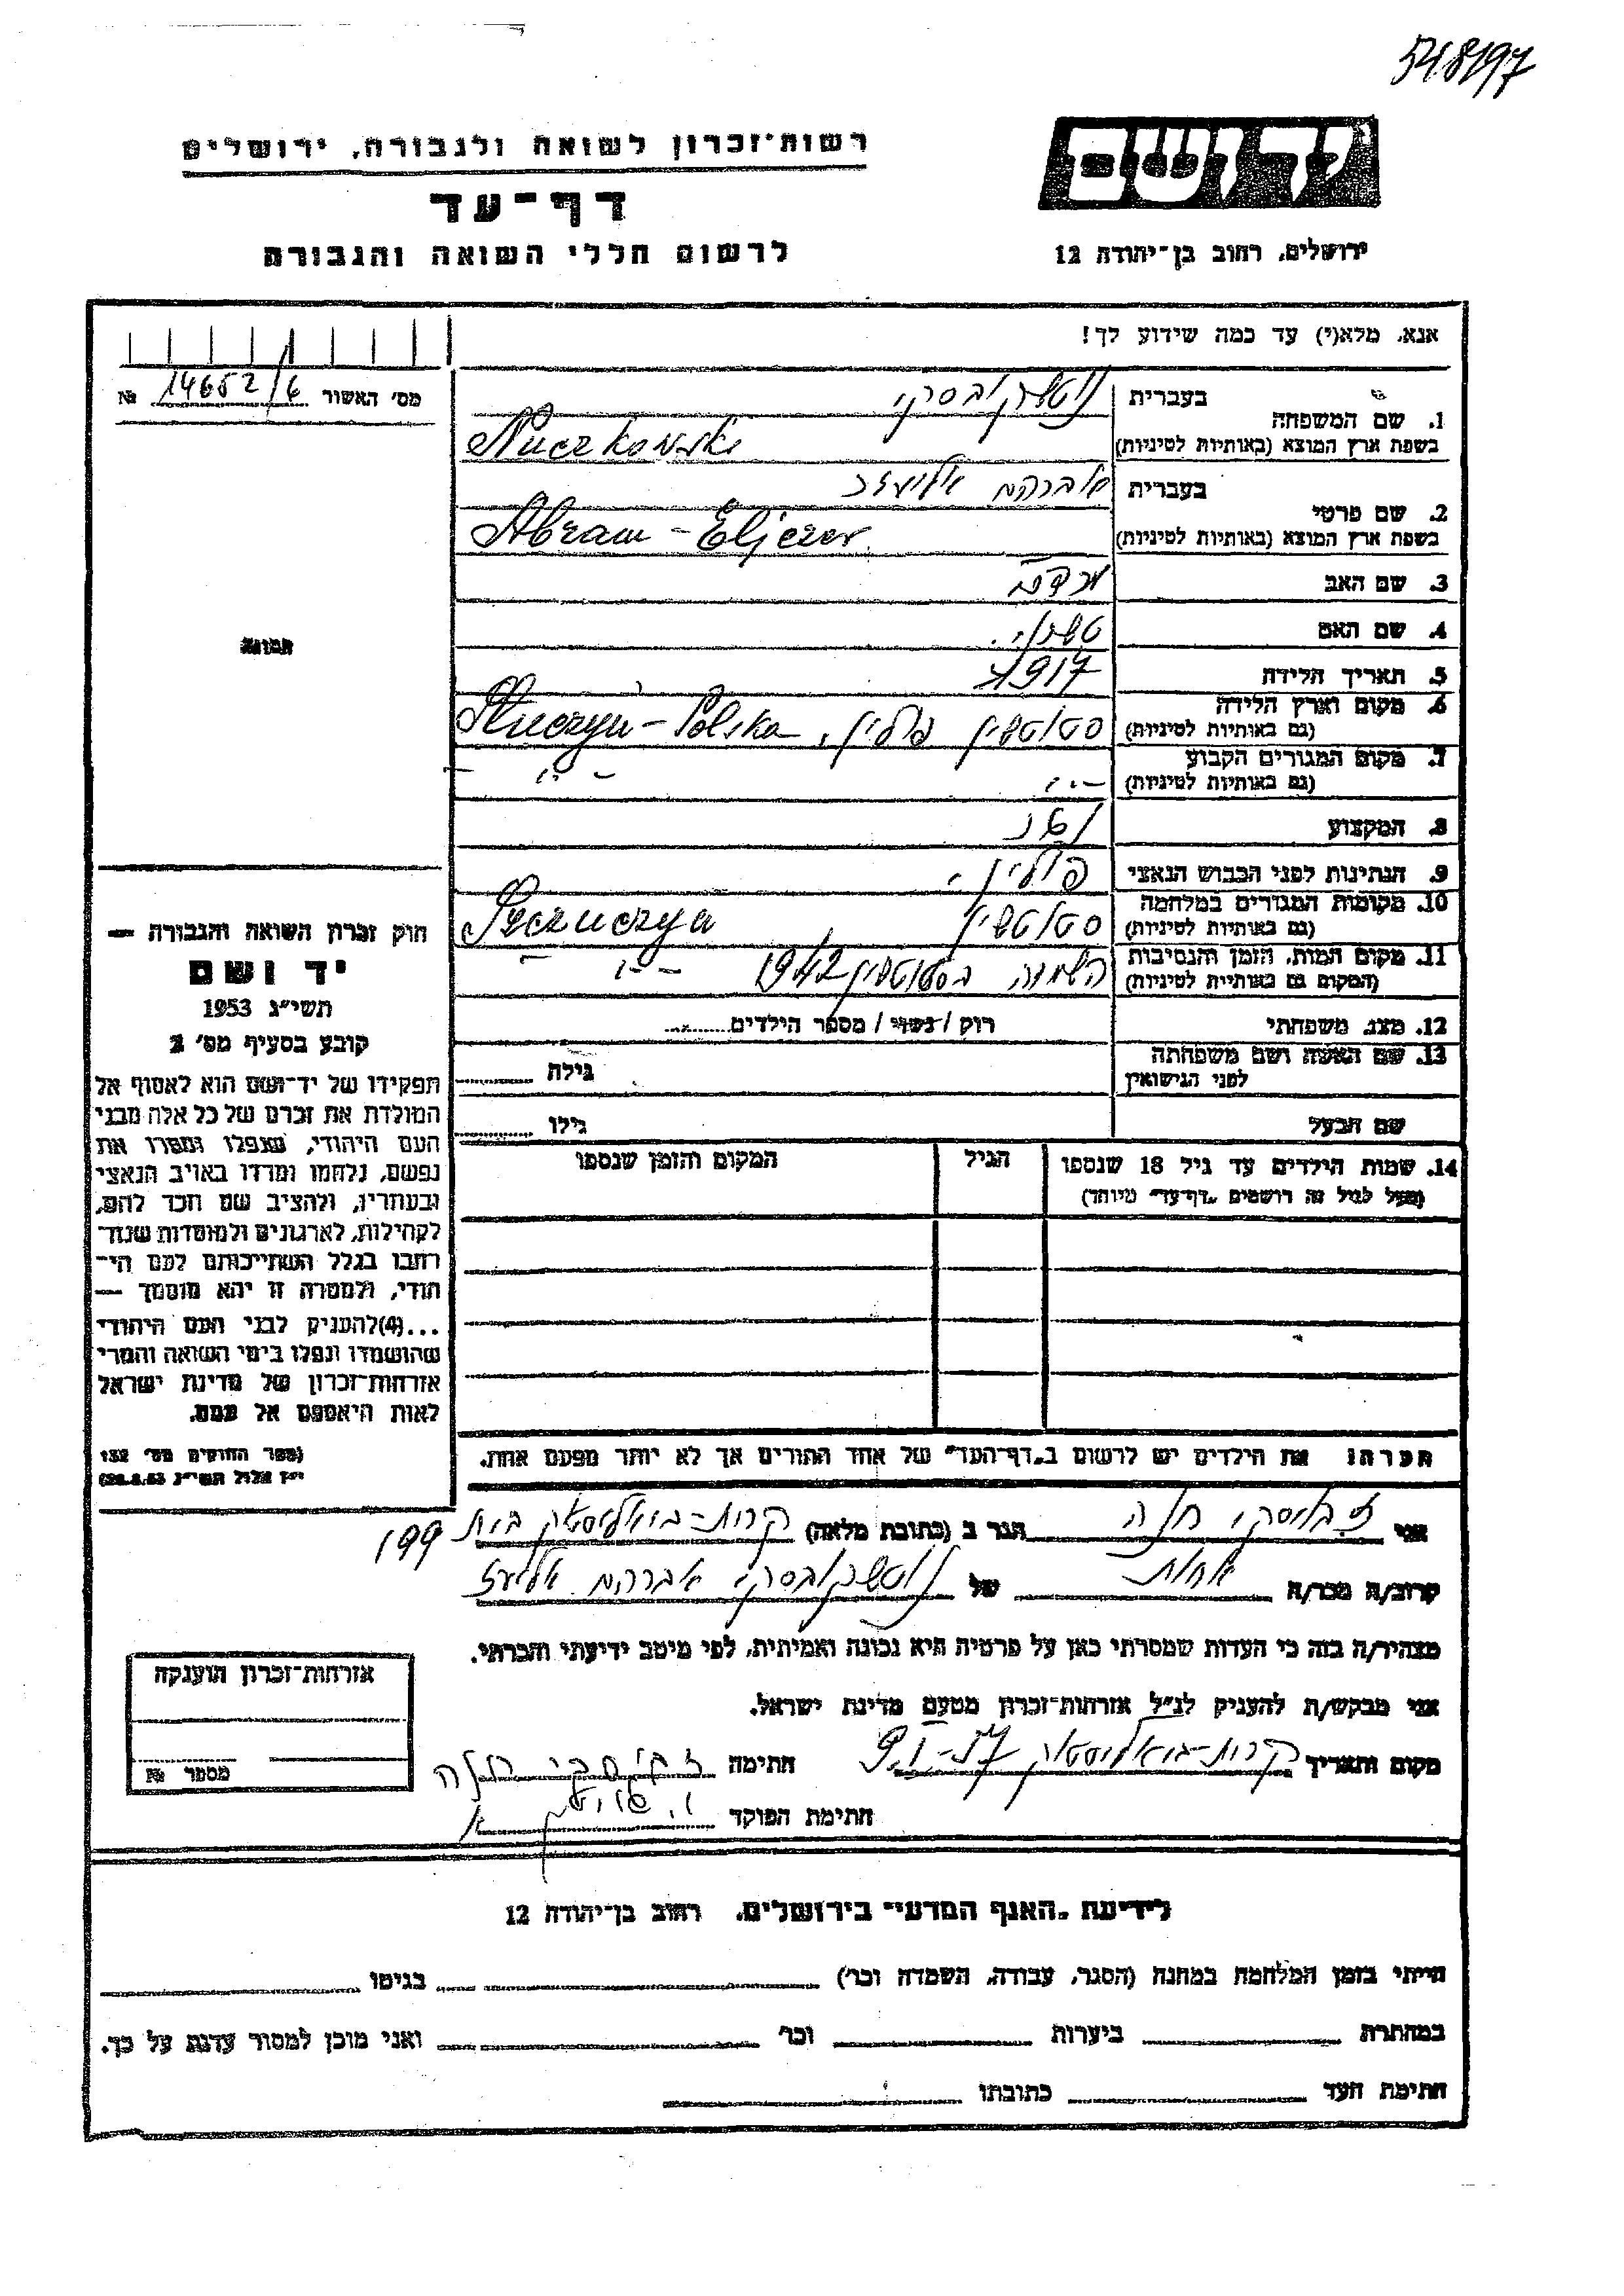 548197
רשות־זכרון לשואה ולגבורה, ירושלים
יד ושם
דף־עד
לרשום חללי השואה והגבורה
ירושלים, רחוב בן־יהודה 12
אנא, מלא(י) עד כמה שידוע לך!
מס׳ האשור 14652/6 №
1. שם המשפחה
בעברית
בשפת ארץ המוצא (באותיות לטיניות) Nuczkowski
2. שם פרטי
בעברית אברהם אליעזר
בשפת ארץ המוצא (באותיות לטיניות) Abram - Eljezer
3. שם האב
4. שם האם
5. תאריך הלידה 1917
6. מקום וארץ הלידה
(גם באותיות לטיניות) סטוטשין פולין, - Polska
7. מקום המגורים הקבוע
(גם באותיות לטיניות) - " -
8. המקצוע
9. הנתינות לפני הכבוש הנאצי פולין
10. מקומות המגורים במלחמה
(גם באותיות לטיניות) סטוטשין
11. מקום המות, הזמן והנסיבות
(המקום גם באותיות לטיניות) בסטוטשין 1942 - " -
12. מצב משפחתי רוק / נשוי / מספר הילדים
13. שם האשה ושם משפחתה
לפני הנישואין גילה
שם הבעל גילו
14. שמות הילדים עד גיל 18 שנספו הגיל המקום והזמן שנספו
(מעל לגיל זה רושמים "דף־עד" מיוחד)
תמונה
חוק זכרון השואה והגבורה —
יד ושם
תשי״ג 1953
קובע בסעיף מס׳ 2
תפקידו של יד־ושם הוא לאסוף אל
המולדת את זכרם של כל אלה מבני
העם היהודי, שנפלו ומסרו את
נפשם, נלחמו ומרדו באויב הנאצי
ובעוזריו, ולהציב שם וזכר להם,
לקהילות, לארגונים ולמוסדות שנח־
רבו בגלל השתייכותם לעם הי־
הודי, ולמטרה זו יהא מוסמך —
...(4) להעניק לבני העם היהודי
שהושמדו ונפלו בימי השואה והמרי
אזרחות־זכרון של מדינת ישראל
לאות היאספם אל עמם.
(ספר החוקים מס׳ 132
י״ז אלול תשי״ג 28.8.53)
הערה: את הילדים יש לרשום ב"דף־העד" של אחד ההורים אך לא יותר מפעם אחת.
אני חנה הגר ב (כתובת מלאה) קרית-ביאליסטוק בית 199
קרוב/ה מכר/ה אחות של אברהם אליעזר
מצהיר/ה בזה כי העדות שמסרתי כאן על פרטיה היא נכונה ואמיתית, לפי מיטב ידיעתי והכרתי.
אני מבקש/ת להעניק לנ״ל אזרחות־זכרון מטעם מדינת ישראל.
מקום ותאריך קרית-ביאליסטוק חתימה
חתימת הפוקד
אזרחות־זכרון הוענקה
מספר №
לידיעת "האגף המדעי" בירושלים, רחוב בן־יהודה 12
הייתי בזמן המלחמה במחנה (הסגר, עבודה, השמדה וכו׳) בגיטו
במחתרת ביערות וכו׳ ואני מוכן למסור עדות על כך.
חתימת העד כתובתו